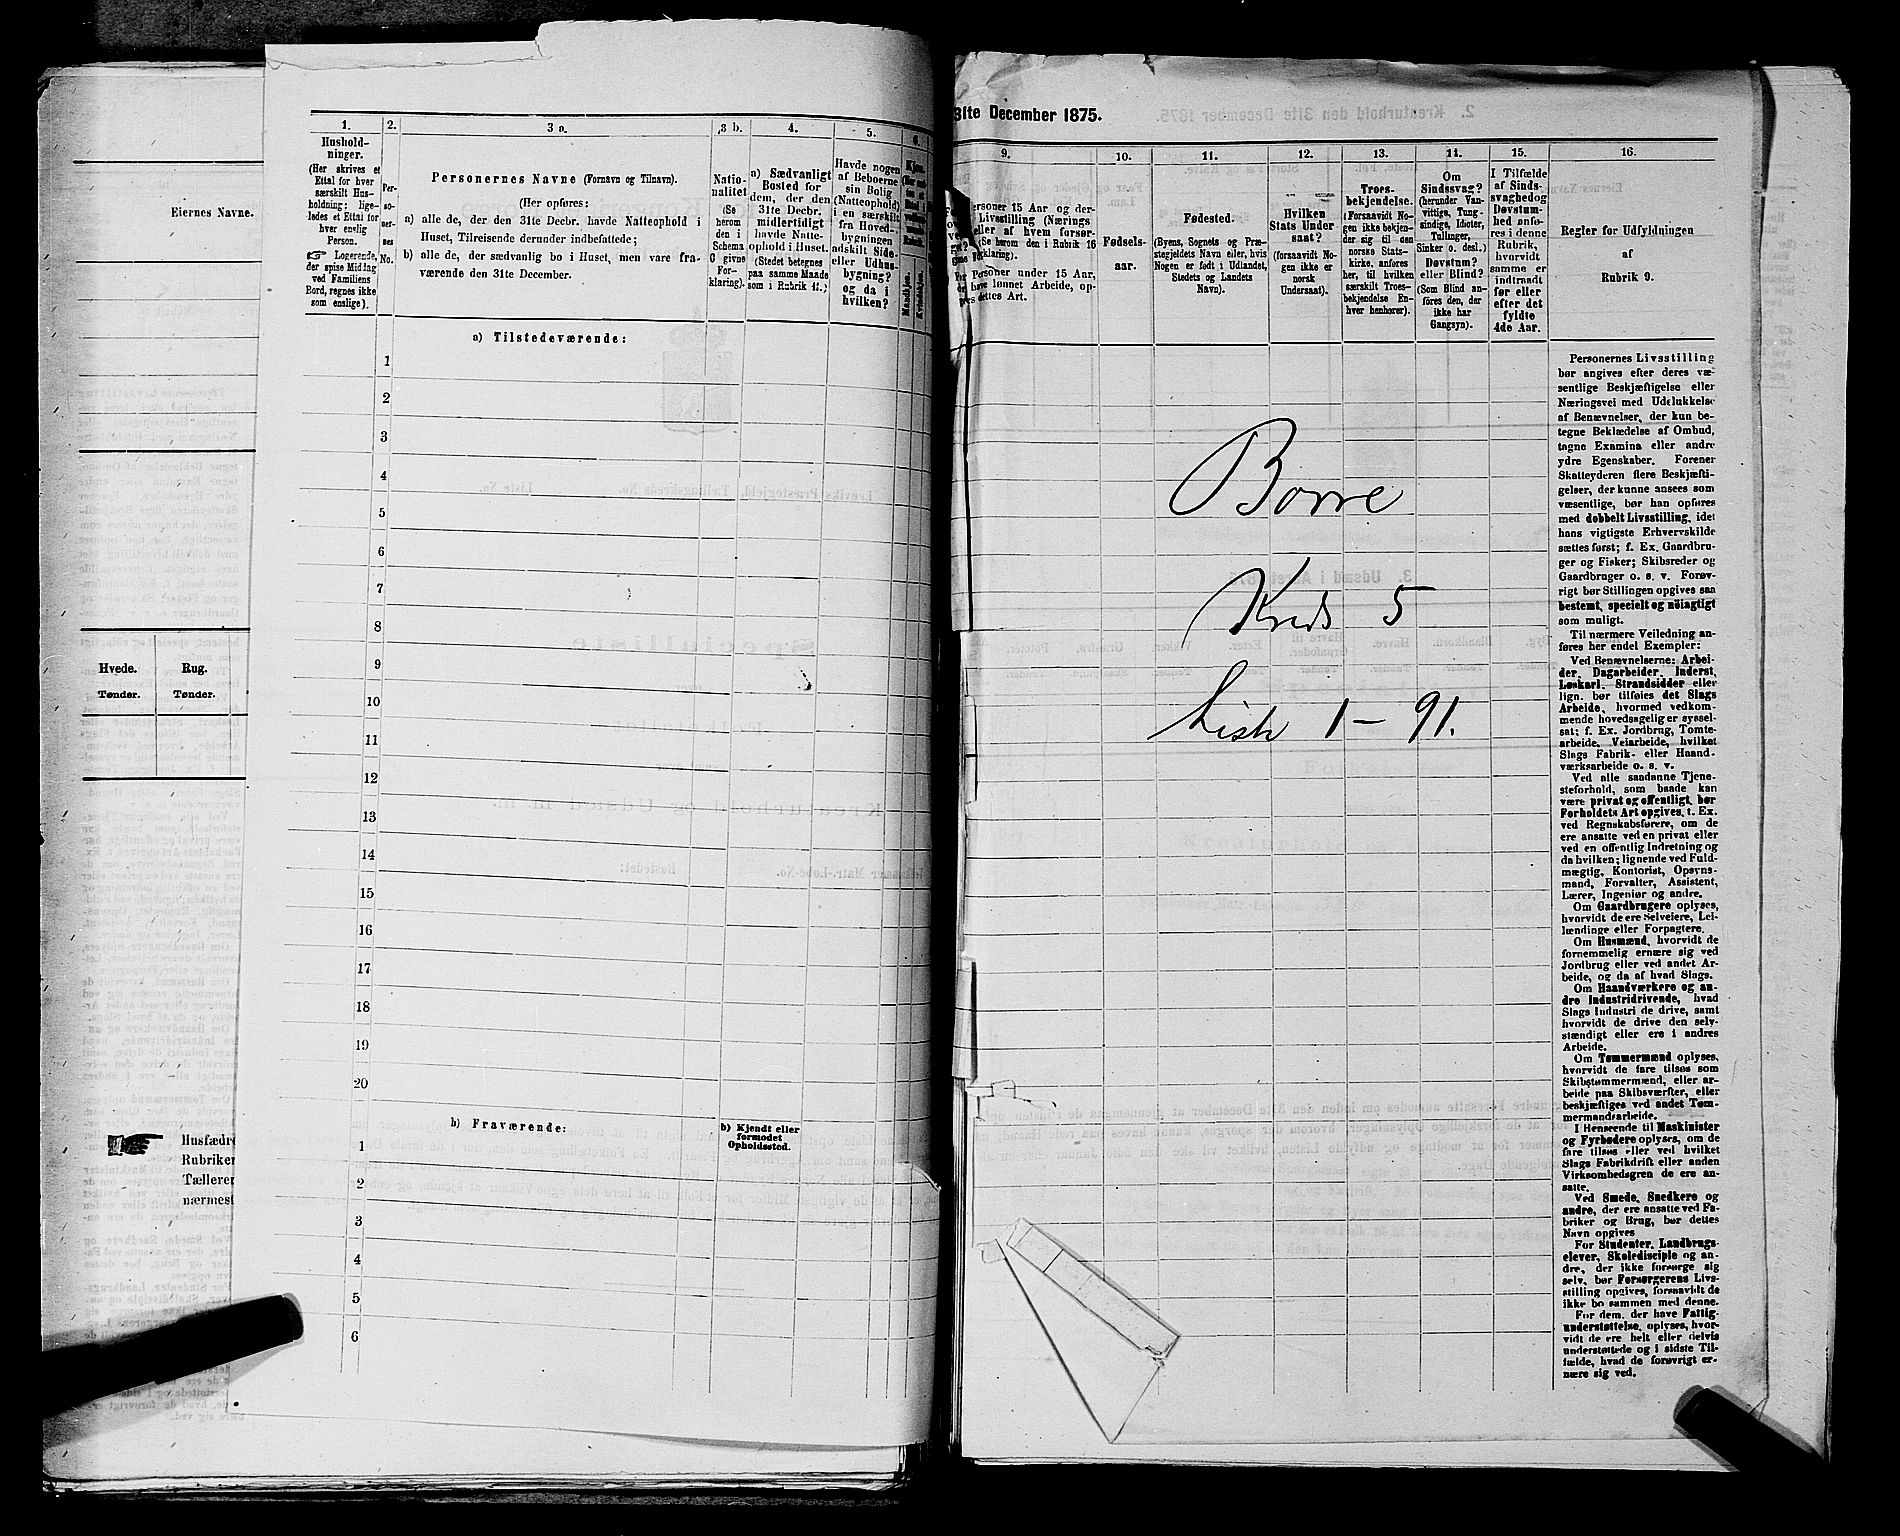 Eiernes Navne.
Hvede.
Rug.
Tønder.
Tønder.
Husfædre
Rubriker
Tællerer
nærmest
1.
Hushold-
ninger.
(Her skrives et
Ettal for hver
særskilt Hus-
holdning; lige-
ledes et Ettal for
hver enslig
Person.
Logerende,
der spise Middag
ved Familiens
Bord, regnes ikke
som enslige).
2.
Per-
so-
ner-
nes
No.
3 a.
Personernes Navne (Fornavn og Tilnavn).
(Her opføres:
a) alle de, der den 31te Decbr. havde Natteophold i
Huset, Tilreisende derunder indbefattede;
b) alle de, der sædvanlig bo i Huset, men vare fra-
værende den 31te December.
3 b.
Natio-
nalitet
(Se
herom
den i
Schema
G givne
For-
klaring).
4.
a) Sædvanligt
Bosted for
dem, der den
31te Decbr.
midlertidigt
havde Natte-
ophold i Huset.
(Stedet betegnes
paa samme Maade
som i Rubrik 11.)
5.
Havde nogen
af Beboerne
sin Bolig
(Natteophold)
i en særskilt
fra Hoved-
bygningen
adskilt Side-
eller Udhus-
bygning?
og da i
hvilken?
6.
Kjøn.
Mandkjøn.
Kvindekjøn.
a) Tilstedeværende:
1
2
3
4
5
6
7
8
9
10
11
12
13
14
15
16
17
18
19
20
b) Fraværende:
b) Kjendt eller
formodet
Opholdssted.
1
2
3
4
5
6
31te December 1875.
9.
Personer 15 Aar og der-
Livsstilling (Nærings
eller af hvem forsør-
(Se herom den i Rubrik 16
Forklaring).
Personer under 15 Aar,
have lønnet Arbeide, op-
dettes Art.
10.
Fødsels-
aar.
11.
Fødested.
(Byens, Sognets og Præ-
stegjeldets Navn eller, hvis
Nogen er født i Udlandet,
Stedets og Landets
Navn).
12.
Hvilken
Stats Under
saat?
(forsaavidt No-
gen ikke er
norsk
Undersaat).
13.
Troes-
bekjendelse.
(Forsaavidt No-
gen ikke bekjen-
der sig til den
norske Stats-
kirke, anføres
her, til hvilken
særskilt Troes-
bekjendelse En-
hver henhører).
14.
Om
Sindssvag?
(herunder Van-
vittige, Tung-
sindige, Idioter,
Tullinger,
Sinker o. desl.)
Døvstum?
eller Blind?
(Som Blind an-
føres den, der
ikke har
Gangsyn).
15.
I Tilfælde
af Sinds-
svaghed og
Døvstum-
hed anfø-
res i denne
Rubrik,
hvorvidt
samme er
indtraadt
før eller
efter det
fyldte
4de Aar.
16.
Regler for Udfyldningen
af
Rubrik 9.
Borre
Kreds 5
Liste 1 – 91.
Personernes Livsstilling
bør angives efter deres væ-
sentlige Beskjæftigelse eller
Næringsvei med Udelukkelse
af Benævnelser, der kun be-
tegne Beklædelse af Ombud,
tagne Examina eller andre
ydre Egenskaber. Forener
Skatteyderen flere Beskjæfti-
gelser, der kunne ansees som
væsentlige, bør han opføres
med dobbelt Livsstilling, idet
hans vigtigste Erhvervskilde
sættes først; f. Ex. Gaardbru-
ger og Fisker; Skibsreder og
Gaardbruger o. s. v. Forøv-
rigt bør Stillingen opgives saa
bestemt, specielt og nöiagtigt
som muligt.
Til nærmere Veiledning an-
føres her endel Exempler:
Ved Benævnelserne: Arbei-
der, Dagarbeider, Inderst,
Løskarl, Strandsidder eller
lign. bør tilføies det Slags
Arbeide, hvormed vedkom-
mende hovedsagelig er syssel-
sat; f. Ex. Jordbrug, Tomte-
arbeide, Veiarbeide, hvilket
Slags Fabrik- eller Haand-
værksarbeide o. s. v.
Ved alle saadanne Tjene-
steforhold, som baade kan
være privat og offentligt, bør
Forholdets Art opgives, t. Ex.
ved Regnskabsførere, om de
ere ansatte ved en privat eller
ved en offentlig Indretning og
da hvilken; lignende ved Fuld-
mægtig, Kontorist, Opsyns-
mand, Forvalter, Assistent,
Lærer, Ingeniør og andre.
Om Gaardbrugere oplyses,
hvorvidt de ere Selveiere, Lei-
lændinge eller Forpagtere.
Om Husmænd, hvorvidt de
fornemmelig ernære sig ved
Jordbrug eller ved andet Ar-
beide, og da af hvad Slags.
Om Haandværkere og an-
dre Industridrivende, hvad
Slags Industri de drive, samt
hvorvidt de drive den selv-
stændigt eller ere i andres
Arbeide.
Om Tømmermænd oplyses,
hvorvidt de fare tilsøs som
Skibstømmermænd, eller ar-
beide paa Skibsværfter, eller
beskjæftiges ved andet Tøm-
mermandsarbeide.
I Henseende til Maskinister
og Fyrbødere oplyses, om de
fare tilsøs eller ved hvilket
Slags Fabrikdrift eller anden
Virksomhedsgren de ere an-
satte.
Ved Smede, Snedkere og
andre, der ere ansatte ved Fa-
briker og Brug, bør dettes
Navn opgives
For Studenter, Landbrugs-
elever, Skoledisciple og an-
dre, der ikke forsørge sig
selv, bør Forsørgerens Livs-
stilling opgives, forsaavidt de
ikke bo sammen med denne.
For dem, der have Fattig-
understøttelse, oplyses, hvor-
vidt de ere helt eller delvis
understøttede og i sidste Til-
fælde, hvad de forøvrigt er-
nære sig ved.